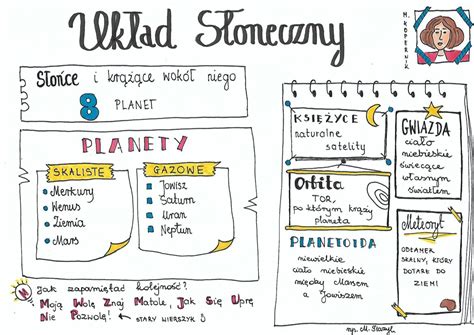 Układ Słoneczny
M. KOPERNIK
Słońce i krążące wokół niego
8 PLANET
PLANETY
SKALISTE
Merkury
Wenus
Ziemia
Mars
GAZOWE
Jowisz
Saturn
Uran
Neptun
Jak zapamiętać kolejność?
Moja Wola Znaj Matole, Jak Się Uprę
Nie Pozwolę! ← STARY WIERSZYK
KSIĘŻYCE
naturalne
satelity
Orbita
TOR,
po którym krąży
planeta
PLANETOIDA
niewielkie
ciało niebieskie
między Marsem
a Jowiszem
GWIAZDA
ciało
niebieskie
świecące
własnym
światłem
Meteoryt
ODŁAMEK
SKALNY, KTÓRY
DOTARŁ DO
ZIEMI